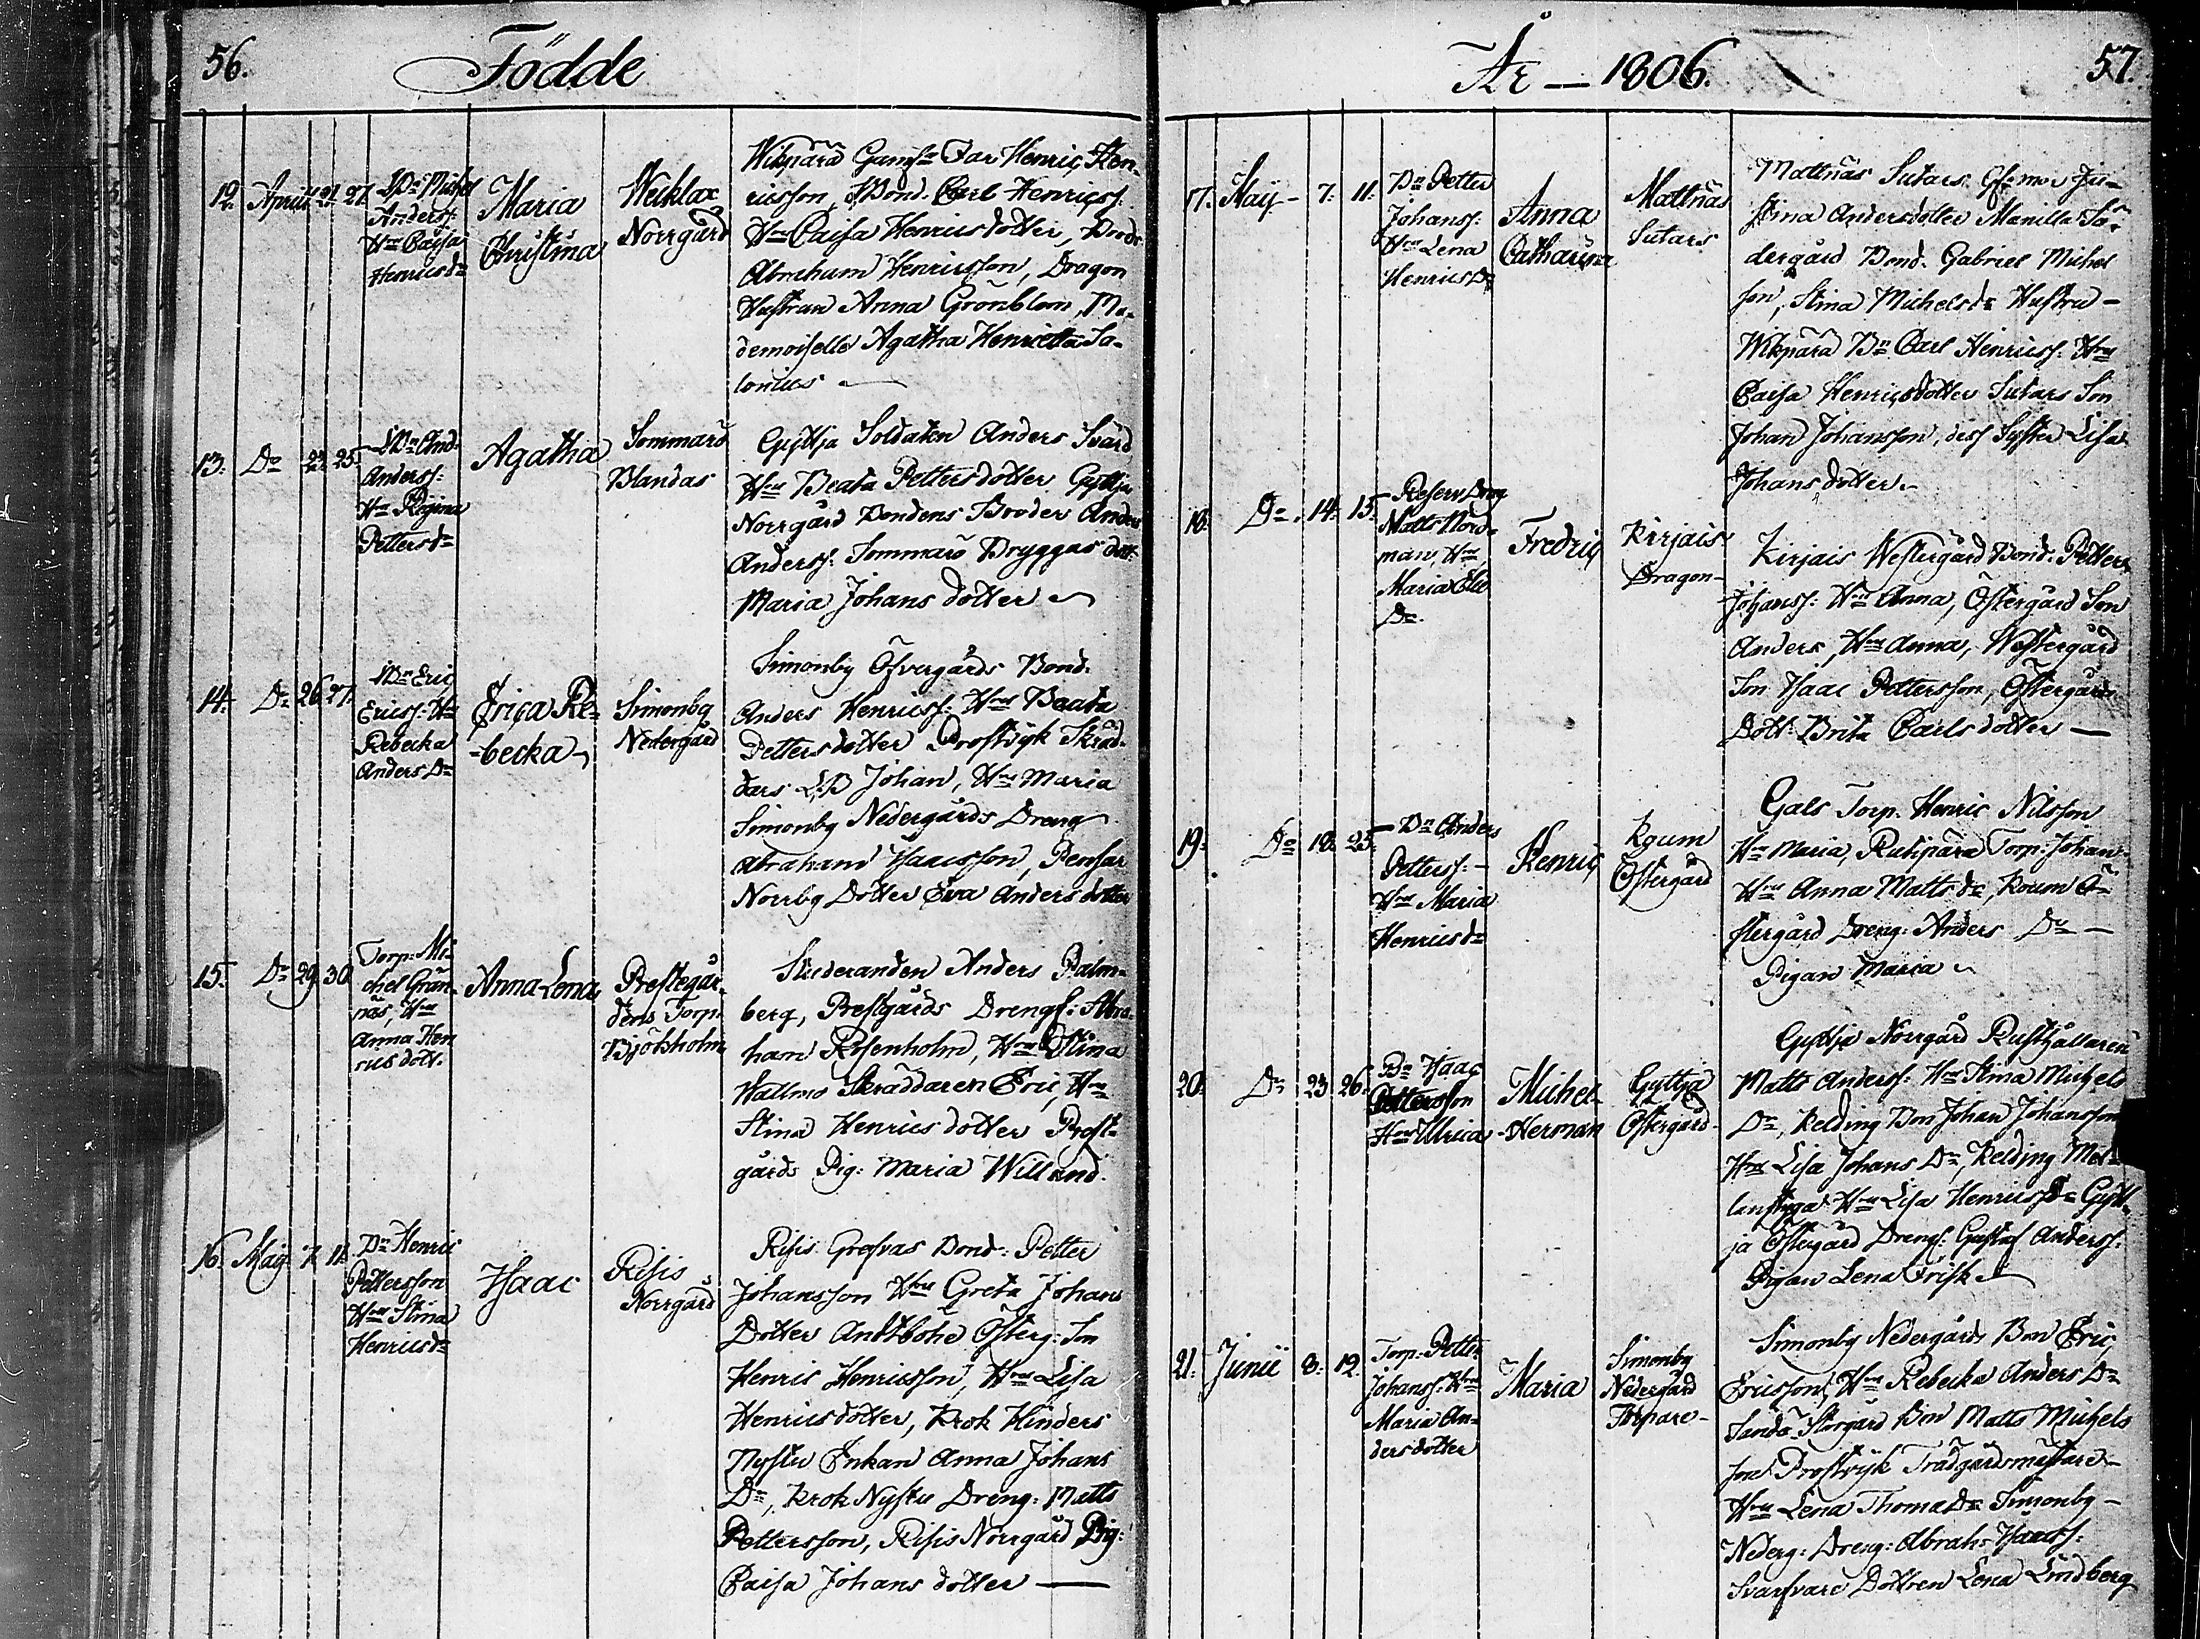 56.
Födde
12. April 21 27.
Bn Michel
Anderss:
Hu Caisa
Henricsdr
Maria
Christina
Wecklax
Norrgård
Wiknärä Far Henric Hen-
ricsson, Bond. Carl Henricss:
Hu Caisa Henricsdotter, Bonds
Abraham Henricsson, Dragon
Hustrun Anna Grönblom, Ma-
demoiselle Agatha Henrietta Sa-
lonius
13. Do 23. 25.
Bn And.
Anderss:
Hu Regina
Pettersdr
Agatha
Sommarö
Blandas
Gyttja Soldaten Anders Svärd
Hu Beata Pettersdotter Gyttja
Norrgård Bondens Broder Anders
Anderss: Sommarö Bryggas dott:
Maria Johans dotter
14. Do 26. 27.
Bn Eric
Ericss: Hu
Rebecka
Anders Dr
Erica Re-
-becka
Simonby
Nedergård
Simonby Öfvergårds Bond.
Anders Henricss: Hu Beata
Petters dotter Prostvik Skräd-
dars Johan, Hu Maria
Simonby Nedergårds Dreng
Abraham Isacsson, Pensar
Norrby Dotter Eva Anders dotter
15. Do 29. 30.
Torp: Mi-
chel Grän-
näs, Hu
Anna Hen
rics dott.
Anna Lena
Prestegår-
dens Torp.
Björkholm
Studeranden Anders Palm-
berg, Prestgårds Drengs: Abra-
ham Rosenholm, Hu Stina
Wallmo Skräddaren Eric, Hu
Stina Henrics dotter Prest-
gårds Pig: Maria Willand.
16. Maij 7. 11.
Bn Henric
Pettersson
Hu Stina
Henricsdr
Isaac
Risis
Norrgård
Risis Grefvas Bond: Petter
Johansson Hu Greta Johans
Dotter Andtböhle Österg: Son
Henric Henricsson, Hu Lisa
Henricsdotter, Krok Hinders
Nystu Enkan Anna Johans
Dr, Krok Nystu Dreng: Matts
Pettersson, Risis Norrgård Pig:
Caisa Johans dotter
År — 1806.
57.
17. Maij - 7. 11.
Bn Petter
Johanss:
Hu Lena
Henrics Dr
Anna
Catharina
Mattnäs
Sutars
Mattnäs Sutars
stina Andersdotter Manilla Sö-
dergård Bond. Gabriel Michel
son, Stina Michelsdr Hustru -
Wiknärä Bn Carl Henricss: Hu
Caisa Henricsdotter Sutars Son
Johan Johansson, dess Syster Lisa
Johans dotter
18. Do. 14. 15.
Reserv Drag
Matts Nord-
man, Hu
Maria
Dr.
Fredric
Kirjais
Dragon-
Kirjais Westergård Bond. Petter
Johanss: Hu Anna, Östergård Son
Anders, Hu Anna, Westergård
Son Isaac Pettersson, Östergårds
Dott: Brita Carls dotter —
19. Do 18. 25.
Bn Anders
Petterss: -
Hu Maria
Henricsdr
Henric
Koum
Östergård
Gals Torp. Henric Nilsson
Hu Maria, Torp: Johan
Hu Anna Matts dr, Koum Ö-
stergård Dreng: Anders Do —
Pigan Maria
20. Do 23. 26.
Bn Isaac
Pettersson
Hu Ulrica
Michel
-Herman
Gyttja
Östergård-
Gyttja Norrgård Rusthållaren
Matts Anderss: Hu Stina Michels
Dr, Kelding Bon Johan Johansson
Hu Lisa Johans Dr, Kelding Mel-
lanstuga Hu Lisa Henricsdr Gytt-
ja Östergård Drengs: Gustaf Anderss:
Pigan Lena Frisk
21. Junii 8. 12.
Torp: Petter
Johanss: Hu
Maria An-
dersdotter
Maria
Simonby
Nedergård
Torpare-
Simonby Nedergårds Bon Eric
Ericsson, Hu Rebecka Anders Dr
Sandö Storgård Bon Matts Michels
son Prostvik Trädgårdsmästare-
Hu Lena Thoma Dr Simonby -
Nederg: Dreng: Abrah: Isacss:
Svarfvare Dottren Lena Lindberg